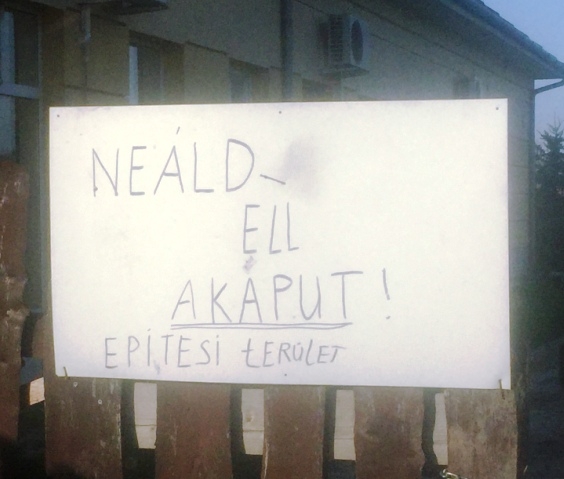 NEÁLD-
ELL
AKAPUT!
EPİTESİ tERÜLET